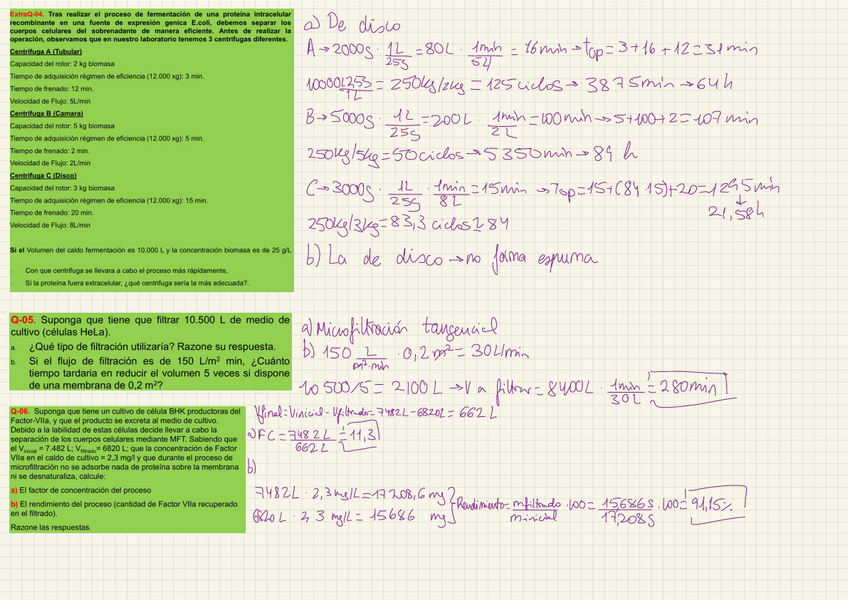 ExtraQ-04. Tras realizar el proceso de fermentación de una proteína intracelular
recombinante en una fuente de expresión genica E.coli, debemos separar los
cuerpos celulares del sobrenadante de manera eficiente. Antes de realizar la
operación, observamos que en nuestro laboratorio tenemos 3 centrifugas diferentes.
Centrifuga A (Tubular)
Capacidad del rotor: 2 kg biomasa
Tiempo de adquisición régimen de eficiencia (12.000 xg): 3 min.
Tiempo de frenado: 12 min.
Velocidad de Flujo: 5L/min
Centrifuga B (Camara)
Capacidad del rotor: 5 kg biomasa
Tiempo de adquisición régimen de eficiencia (12.000 xg): 5 min.
Tiempo de frenado: 2 min.
Velocidad de Flujo: 2L/min
Centrifuga C (Disco)
Capacidad del rotor: 3 kg biomasa
Tiempo de adquisición régimen de eficiencia (12.000 xg): 15 min.
Tiempo de frenado: 20 min.
Velocidad de Flujo: 8L/min
Si el Volumen del caldo fermentación es 10.000 L y la concentración biomasa es de 25 g/L
Con que centrifuga se llevara a cabo el proceso más rápidamente,
Si la proteína fuera extracelular, ¿qué centrifuga sería la más adecuada?.
a) De disco
A→2000g · 1L/25g = 80L · 1min/5L = 16min→top=3+16+12=31min
10000L·25g/1L = 250kg/2kg = 125 ciclos → 3875min→64h
B→5000g · 1L/25g = 200L · 1min/2L = 100min→5+100+2=107min
250kg/5kg=50 ciclos→5350min→89 h
C→3000g · 1L/25g · 1min/8L = 15min →Top=15+(84·15)+20=1295min
↓
21,58h
250kg/3kg=83,3 ciclos≃84
b) La de disco →no forma espuma
Q-05. Suponga que tiene que filtrar 10.500 L de medio de
cultivo (células HeLa).
a. ¿Qué tipo de filtración utilizaría? Razone su respuesta.
b. Si el flujo de filtración es de 150 L/m² min, ¿Cuánto
tiempo tardaria en reducir el volumen 5 veces si dispone
de una membrana de 0,2 m²?
a) Microfiltración tangencial
b) 150 L/m²·min · 0,2m²= 30L/min
10 500/5 = 2100 L →V a filtrar = 8400L · 1min/30L = 280min
Q-06. Suponga que tiene un cultivo de célula BHK productoras del
Factor-VIIa, y que el producto se excreta al medio de cultivo.
Debido a la labilidad de estas células decide llevar a cabo la
separación de los cuerpos celulares mediante MFT. Sabiendo que
el Vinicial = 7.482 L; Vfiltrado= 6820 L; que la concentración de Factor
VIIa en el caldo de cultivo = 2,3 mg/l y que durante el proceso de
microfiltración no se adsorbe nada de proteína sobre la membrana
ni se desnaturaliza, calcule:
a) El factor de concentración del proceso
b) El rendimiento del proceso (cantidad de Factor VIIa recuperado
en el filtrado).
Razone las respuestas.
Vfinal=Vinicial-Vfiltrado=7482L-6820L= 662L
a)FC=7482L/662L=11,3
b)
7482L · 2,3mg/L=17208,6mg
6820L · 2,3 mg/L = 15686 mg
Rendimiento=mfiltrado/minicial·100=15,686g/17,208g·100=91,15%